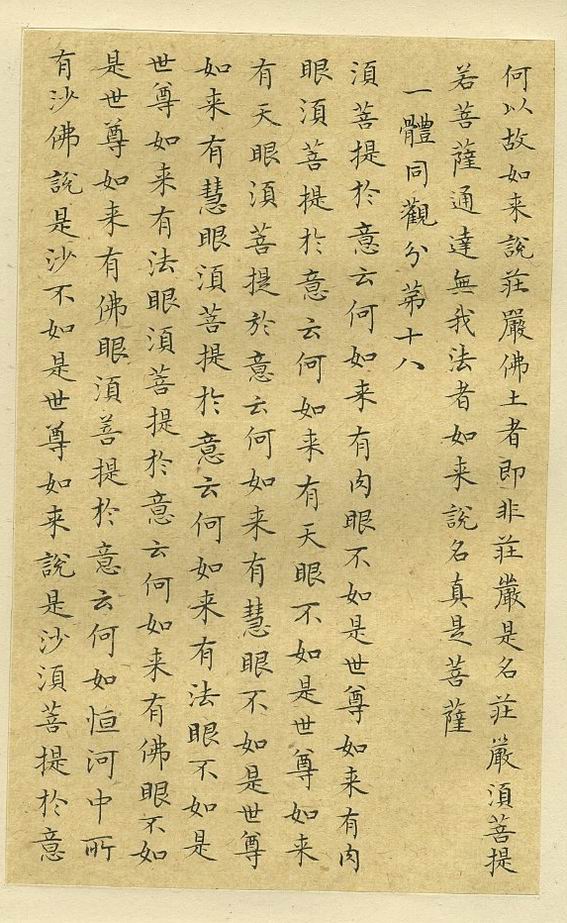 何以故如来說莊嚴佛土者即非莊嚴是名莊嚴湏菩提
若菩薩通達無我法者如来說名真是菩薩
一體同觀分苐十八
湏菩提於意云何如来有肉眼不如是世尊如来有肉
眼湏菩提於意云何如来有天眼不如是世尊如来
有天眼湏菩提於意云何如来有慧眼不如是世尊
如来有慧眼湏菩提於意云何如来有法眼不如是
世尊如来有法眼湏菩提於意云何如来有佛眼不如
是世尊如来有佛眼湏菩提於意云何如恒河中所
有沙佛說是沙不如是世尊如来說是沙湏菩提於意